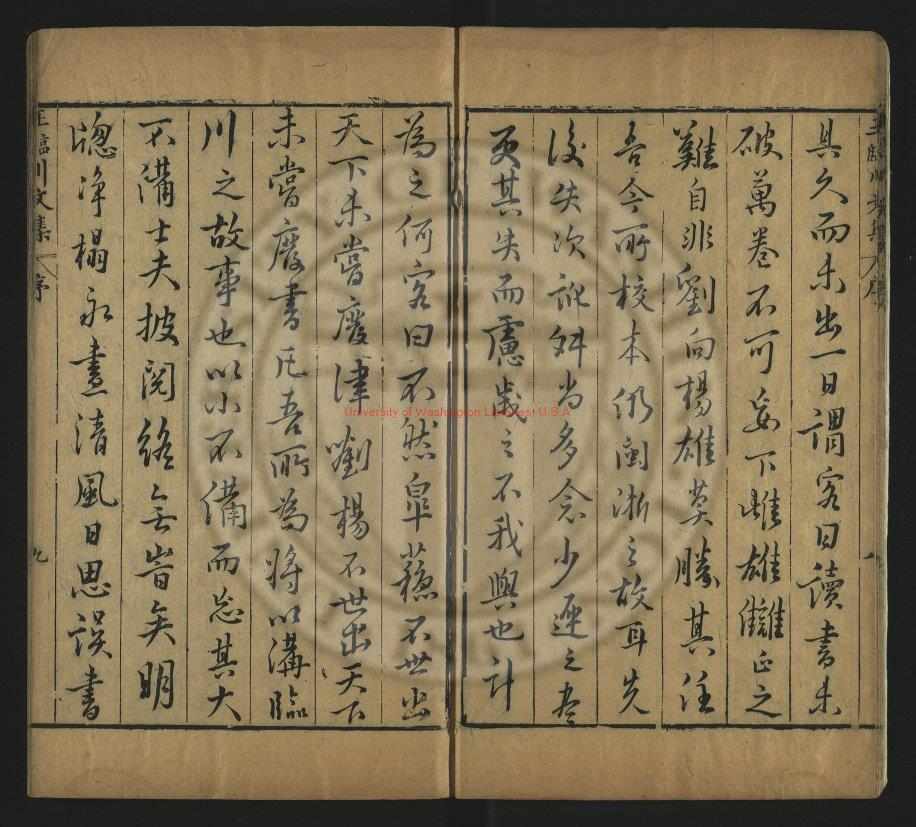 具久而未出一日謂客曰讀書未
破萬卷不可妄下雌雄讎正之
難自非劉向楊雄莫勝其任
吾今所校本仍閩浙之故耳先
後失次訛舛尚多念少遲之盡
更其失而慮歲之不我與也計
為之何客曰不然皐蘓不世出
天下未嘗廢律劉楊不世出天下
未嘗廢書凡吾所為將以備臨
川之故事也以小不備而忘其大
不備士夫披閱終無時矣明
牕淨榻永晝清風日思誤書
王臨川文集 序 八
王臨川文集 序 九
University of Washington Libraries, U.S.A